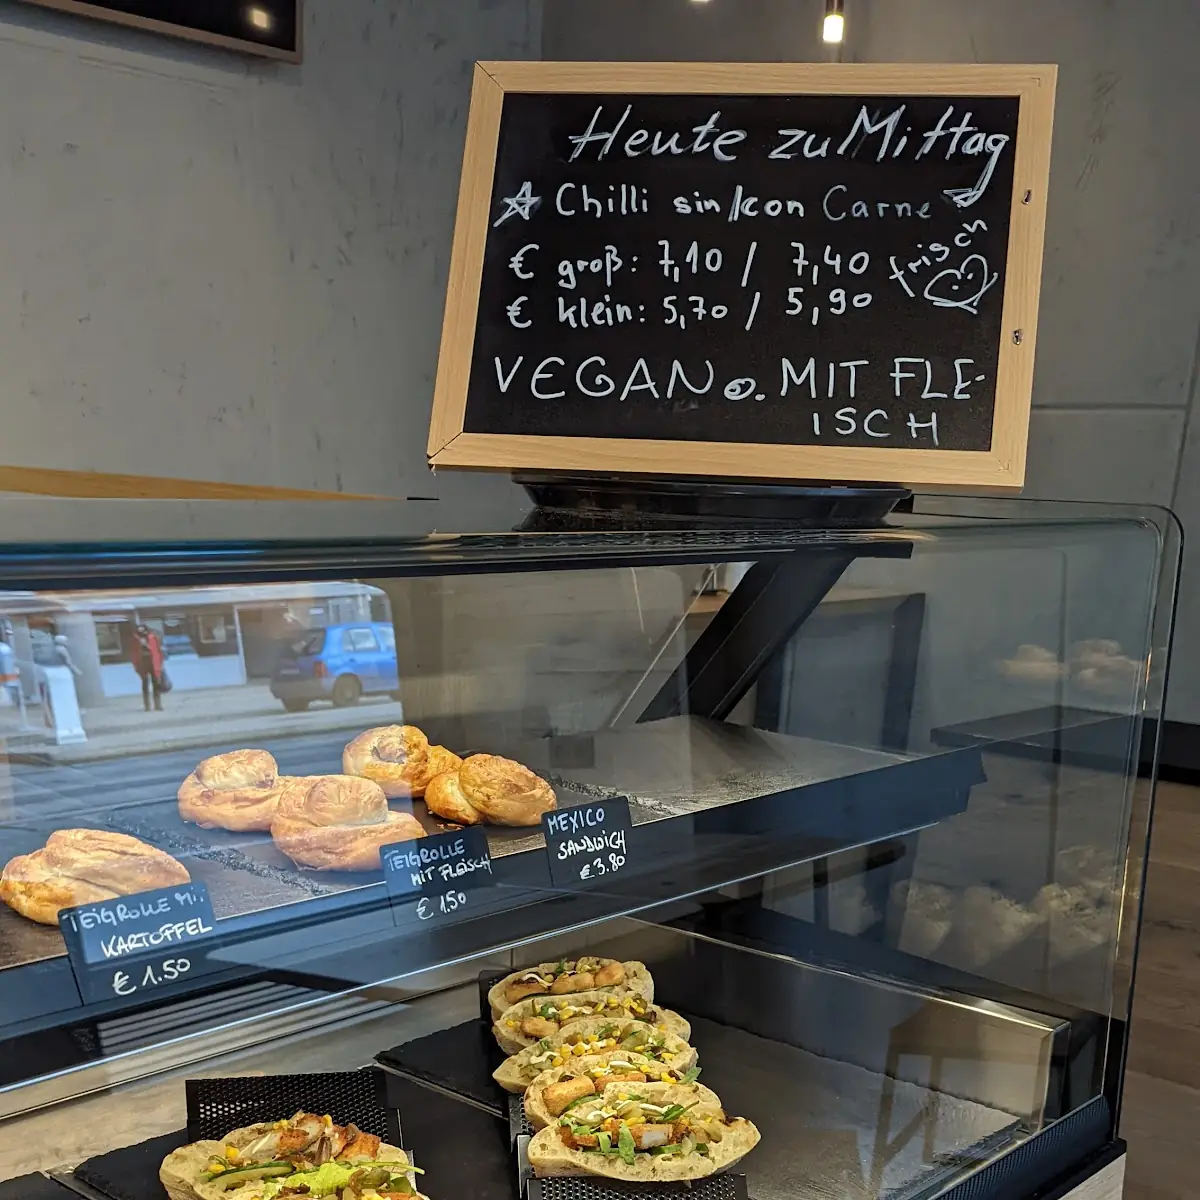 Heute zu Mittag
Chilli sin/con Carne
€ groß: 7,10 / 7,40
frisch
€ klein: 5,70 / 5,90
VEGAN o. MIT FLE-
ISCH
MEXICO
SANDWICH
€ 3.80
TEIGROLLE
MIT FLEISCH
€ 1.50
TEIGROLLE MI.
KARTOFFEL
€ 1.50